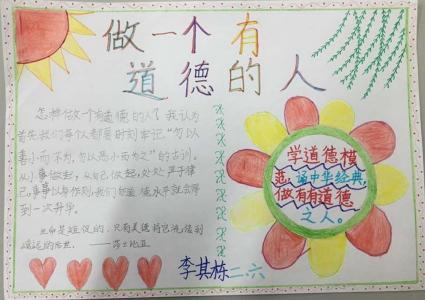 做一个有
道德的人
怎样做一个有道德的人？我认为
首先我们每个人都要时刻牢记“勿以
善小而不为，勿以恶小而为之”的古训。
从小事做起，从自己做起，处处严于律
己，事事以身作则，我们的道德水平就会得
到一次升华。
生命是短促的，只有美德将它流传到
遥远的后世。 ——莎士比亚
学道德模
范，诵中华经典，
做有有道德
之人。
李其栋二六